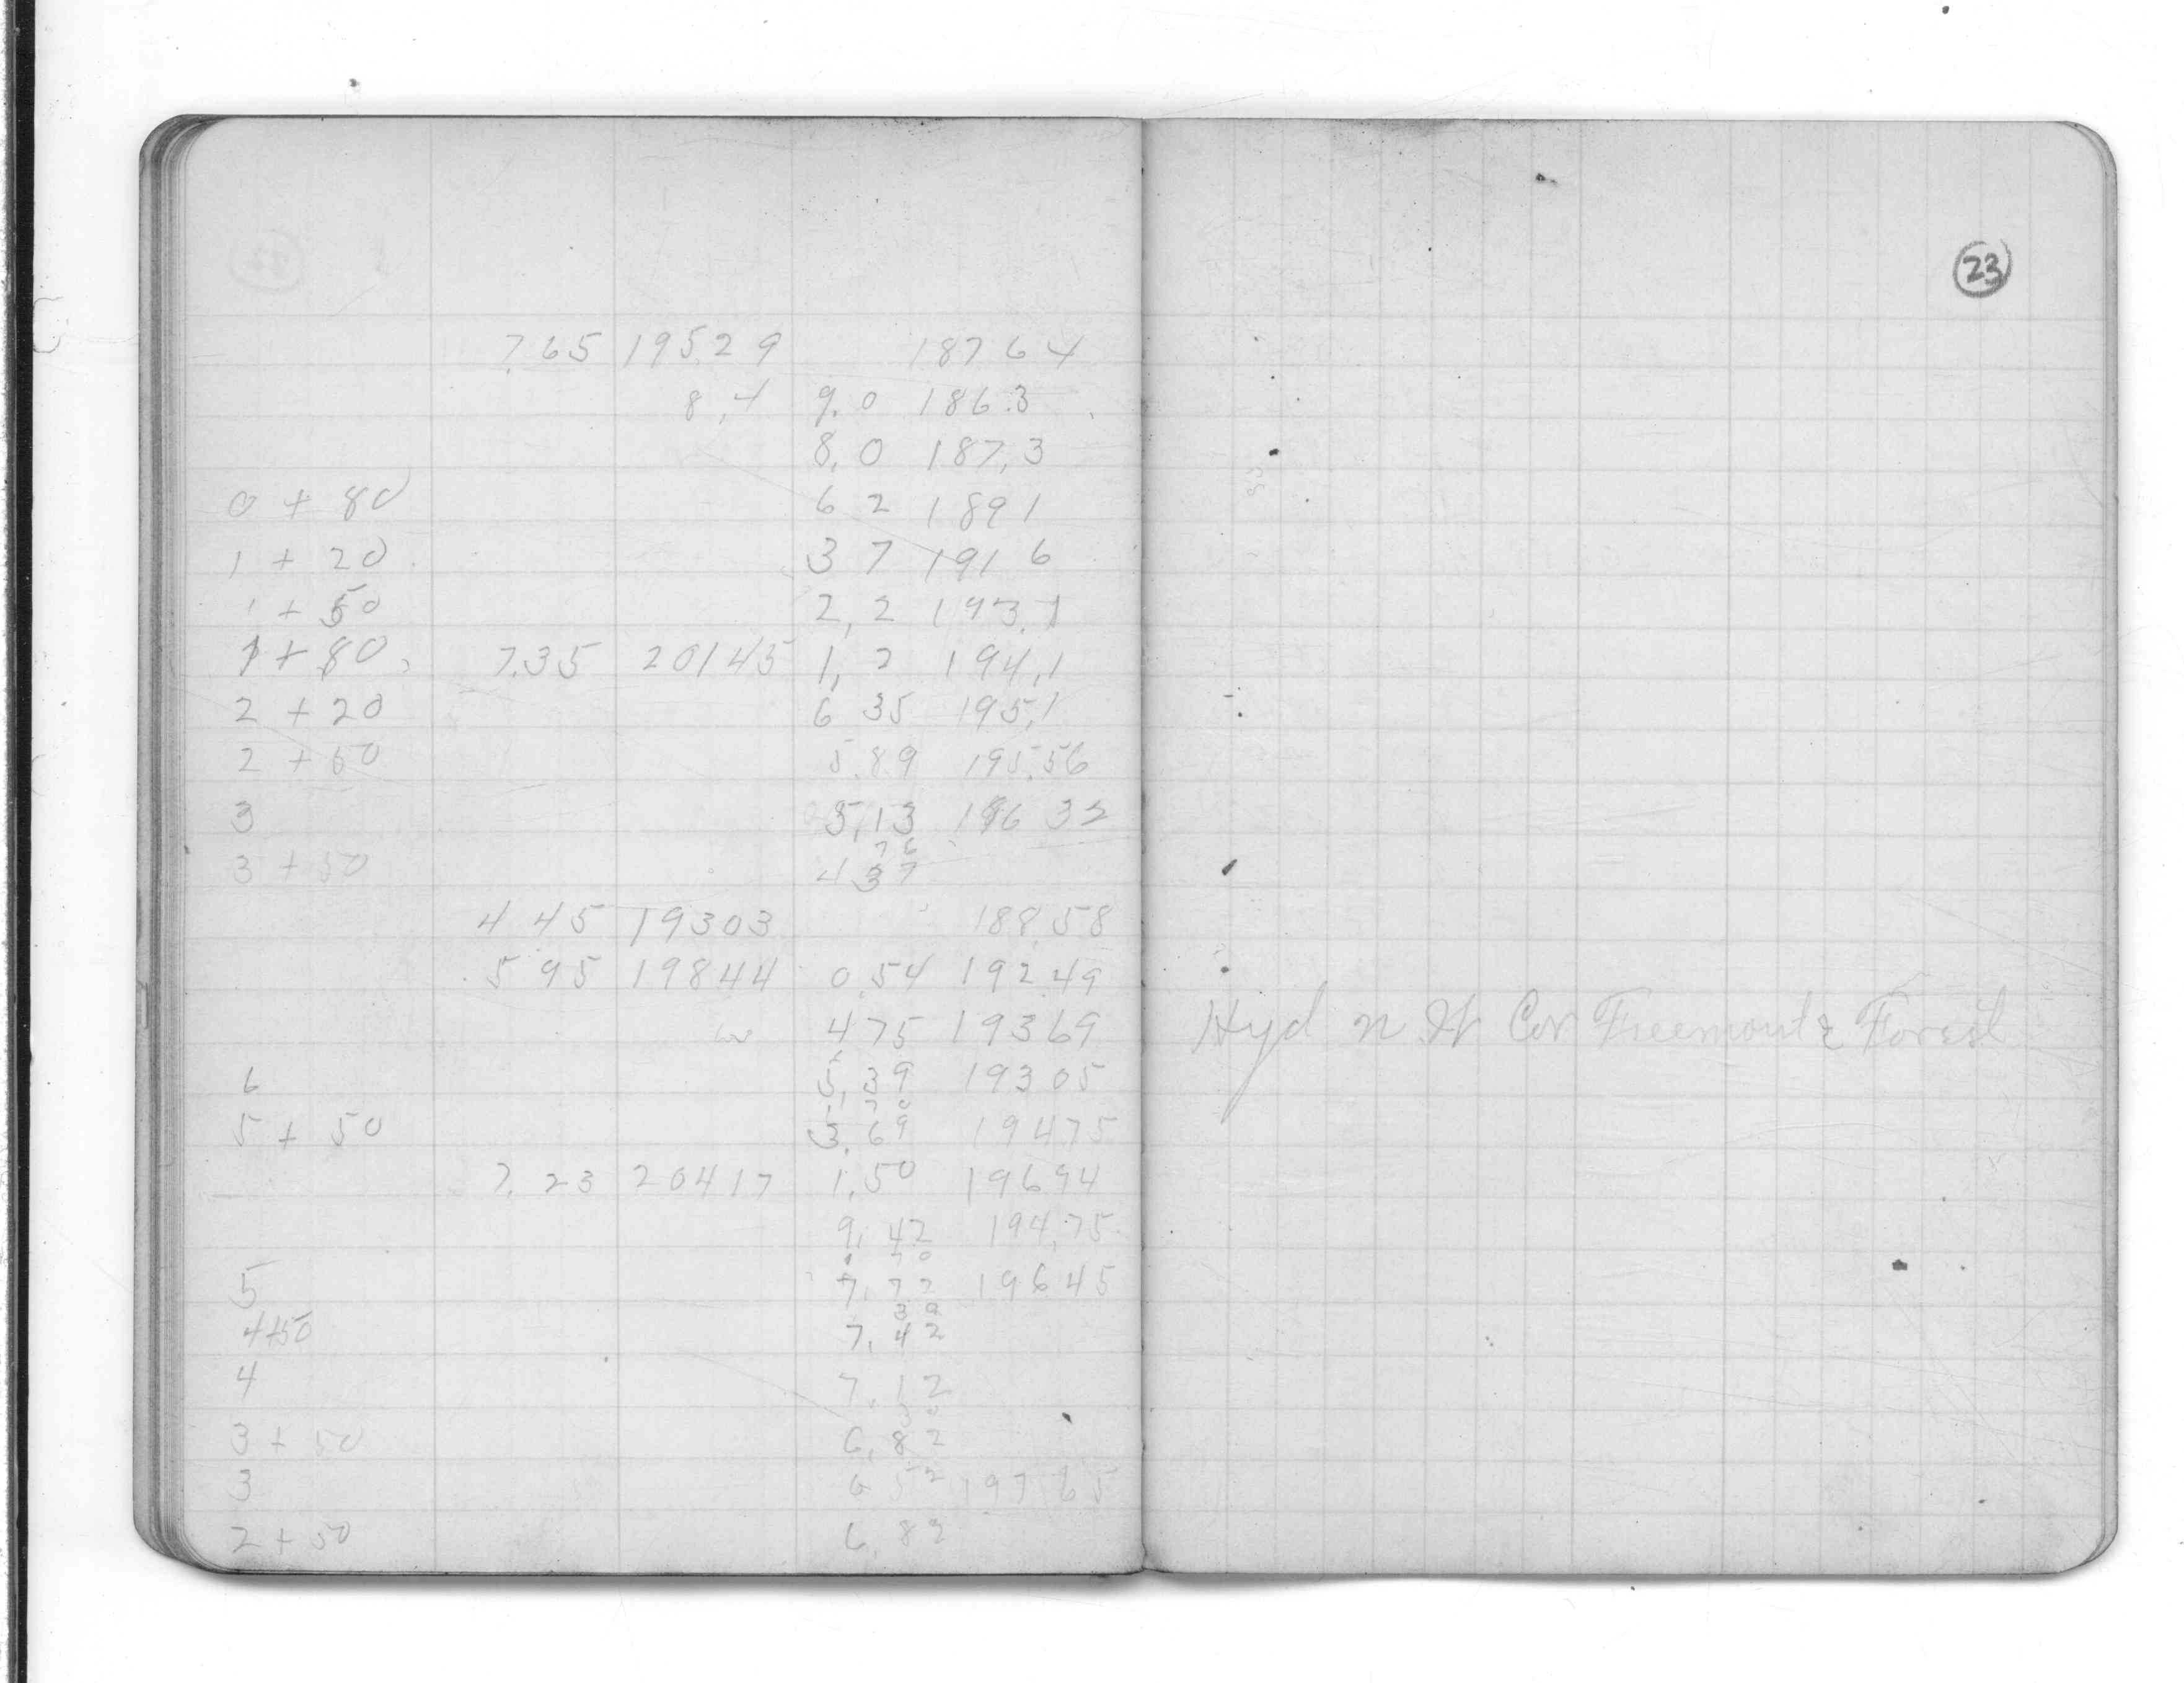 23
7.65 195.29 187 64
8,4 9.0 186.3
8,0 187,3
0 + 80 6 2 189 1
1 + 20 3 7 191 6
1 + 50 2,2 193.1
1 + 80 7.35 201 45 1,2 194,1
2 + 20 6 35 195,1
2 + 60 5.89 195.56
3 5,13 196 32
76
3 + 50 4 37
4 45 193 03 188 58
5 95 198 44 0.54 192.49
4 75 193 69 Hyd N W Cor Freemont & Forest
6 5,39 193 05
1 70
5 + 50 3.69 194 75
7.23 204 17 1,50 196 94
9,42 194,75
1 70
5 7,72 196 45
30
4+50 7,42
4 7.12
3 + 50 6,82
3 6 52 197 65
2 + 50 6,82